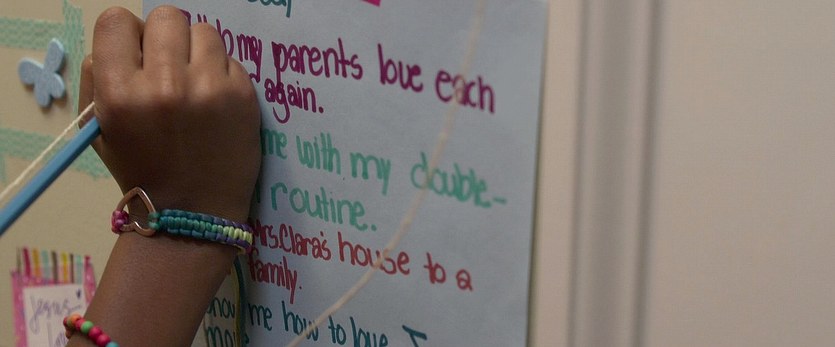 my parents love each
again.
me with my double-
routine.
Mrs.Clara's house to a
family.
me how to love
Jesus